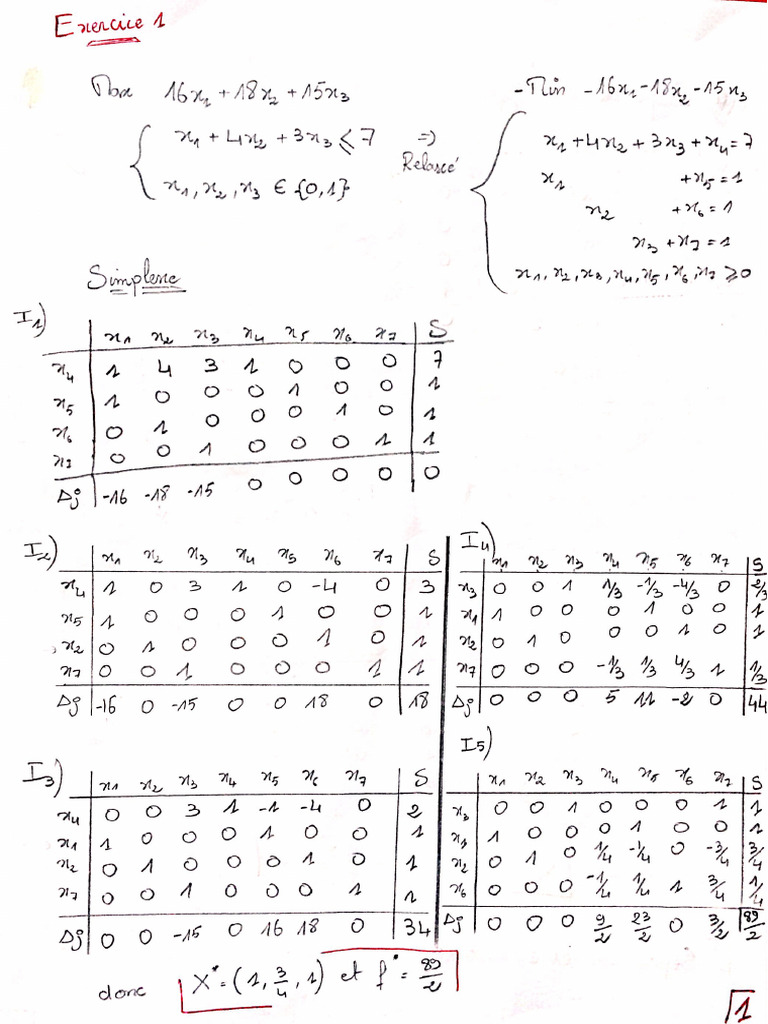 Exercice 1
Max 16x₁ + 18x₂ + 15x₃
x₁ + 4x₂ + 3x₃ ≤ 7
x₁, x₂, x₃ ∈ {0,1}
=>
Relaxé
-Min -16x₁ -18x₂ -15x₃
x₁ + 4x₂ + 3x₃ + x₄ = 7
x₁ + x₅ = 1
x₂ + x₆ = 1
x₃ + x₇ = 1
x₁, x₂, x₃, x₄, x₅, x₆, x₇ ≥ 0
Simplexe
I₁)
x₁ x₂ x₃ x₄ x₅ x₆ x₇ S
x₄ 1 4 3 1 0 0 0 7
x₅ 1 0 0 0 1 0 0 1
x₆ 0 1 0 0 0 1 0 1
x₇ 0 0 1 0 0 0 1 1
Δj -16 -18 -15 0 0 0 0 0
I₂)
x₁ x₂ x₃ x₄ x₅ x₆ x₇ S
x₄ 1 0 3 1 0 -4 0 3
x₅ 1 0 0 0 1 0 0 1
x₂ 0 1 0 0 0 1 0 1
x₇ 0 0 1 0 0 0 1 1
Δj -16 0 -15 0 0 18 0 18
I₃)
x₁ x₂ x₃ x₄ x₅ x₆ x₇ S
x₄ 0 0 3 1 -1 -4 0 2
x₁ 1 0 0 0 1 0 0 1
x₂ 0 1 0 0 0 1 0 1
x₇ 0 0 1 0 0 0 1 1
Δj 0 0 -15 0 16 18 0 34
I₄)
x₁ x₂ x₃ x₄ x₅ x₆ x₇ S
x₃ 0 0 1 1/3 -1/3 -4/3 0 2/3
x₁ 1 0 0 0 1 0 0 1
x₂ 0 1 0 0 0 1 0 1
x₇ 0 0 0 -1/3 1/3 4/3 1 1/3
Δj 0 0 0 5 11 -2 0 44
I₅)
x₁ x₂ x₃ x₄ x₅ x₆ x₇ S
x₃ 0 0 1 0 0 0 1 1
x₁ 1 0 0 0 1 0 0 1
x₂ 0 1 0 1/4 -1/4 0 -3/4 3/4
x₆ 0 0 0 -1/4 1/4 1 3/4 1/4
Δj 0 0 0 9/2 23/2 0 3/2 89/2
donc X* = (1, 3/4, 1) et f* = 89/2
1